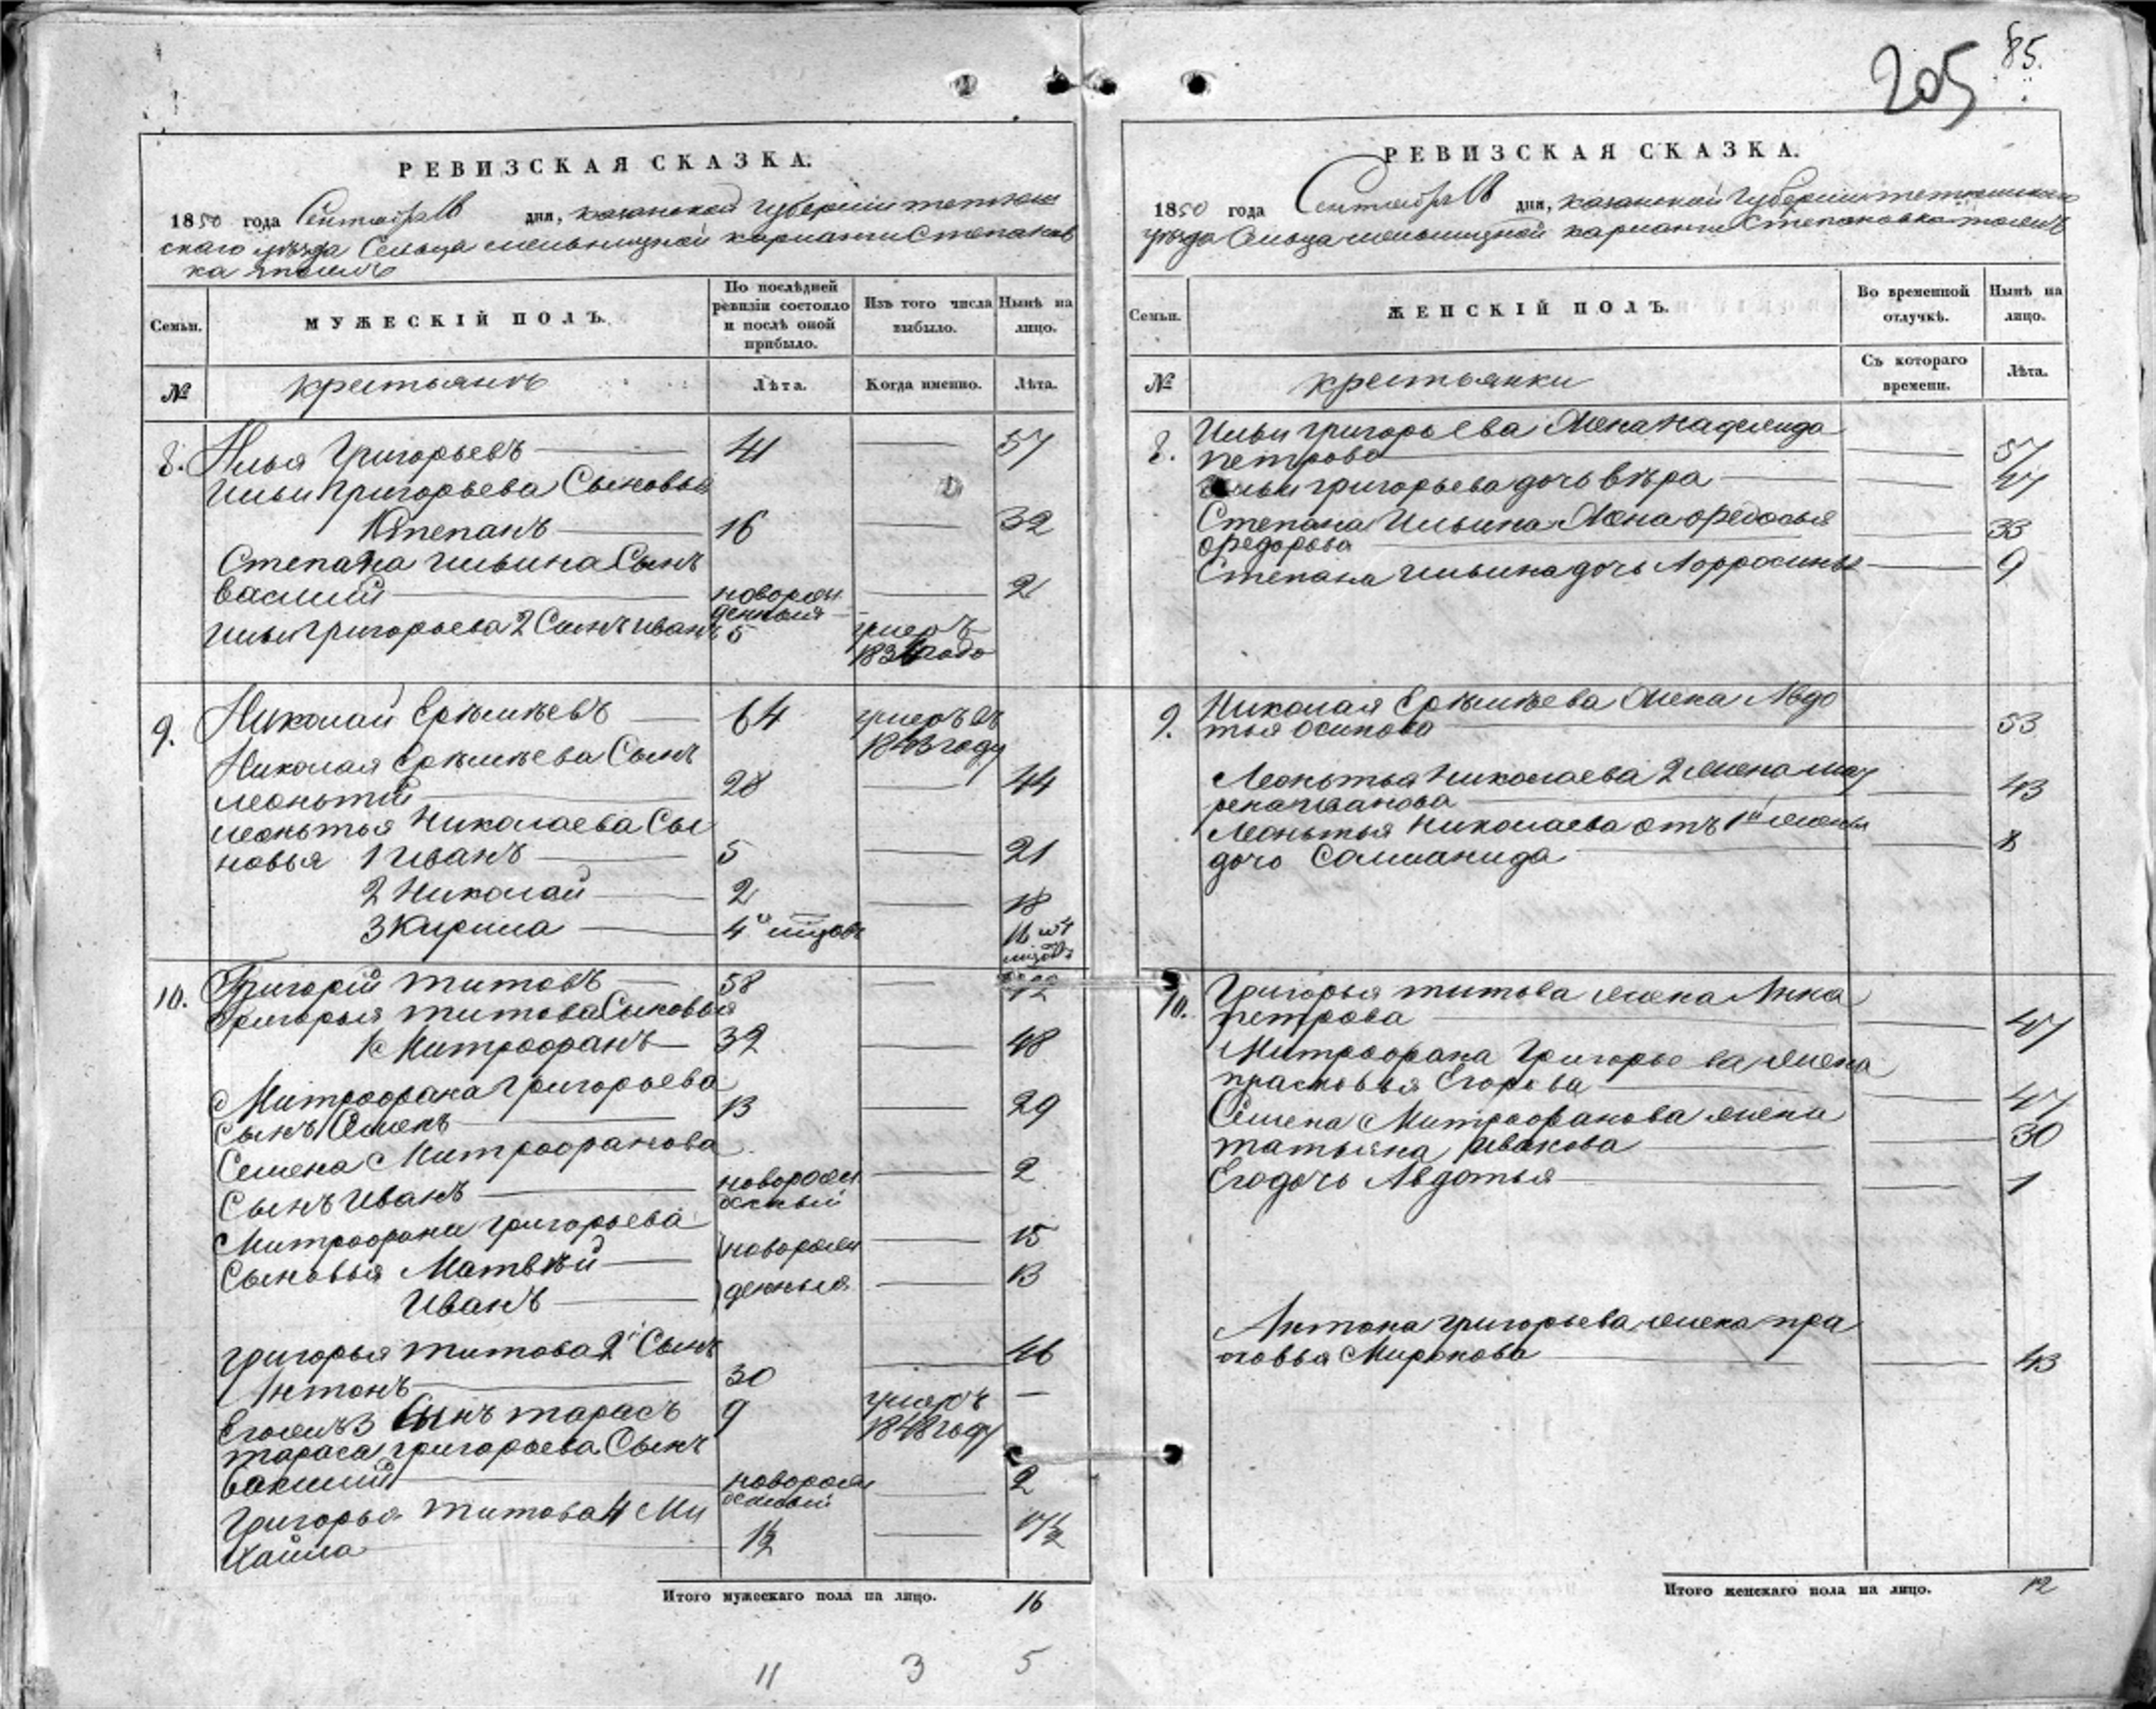 205 85.
РЕВИЗСКАЯ СКАЗКА.
1850 года Сентября дня, казанской губернии тетюш
скаго уѣзда Сельца мельничной карланги Степанов
ка тожъ
Семьи. МУЖЕСКІЙ ПОЛЪ. По послѣдней ревизіи состояло и послѣ оной прибыло. Изъ того числа выбыло. Нынѣ на лицо.
№ крестьянъ Лѣта. Когда именно. Лѣта.
8. Илья Григорьевъ 41 57
Ильи Григорьева Сыновья
1 Степанъ 16 32
Степана Ильина Сынъ
Василий новорож 2
денныя
Ильи Григорьева 2 Сынъ иванъ 5 умеръ
183 годо
9. Николай Ерѣмѣевъ 64 умеръ въ
1843 году
Николая Ерѣмѣева Сынъ
леонтий 28 44
леонтья Николаева Сы
новья 1 иванъ 5 21
2 Николай 2 18
3 Кирила 4 мцовъ 16 и 4
мцовъ
10. Григорій титовъ 58
Григорья титова Сыновья
1 Митрофанъ 32 48
Митрофана григорьева
Сынъ Семенъ 13 29
Семена Митрофанова
Сынъ иванъ новорож 2
денный
Митрофана григорьева
Сыновья Матвѣй новорож 15
Иванъ денныя 13
григорья титова 2й Сынъ
Антонъ 30 46
Егожъ 3 Сынъ тарасъ 9 умеръ —
1848 году
тараса григорьева Сынъ
Василий новорож 2
денный
Григорья титова 4 Ми
хайла 1½ 17½
Итого мужескаго пола на лицо. 16
11 3 5
РЕВИЗСКАЯ СКАЗКА.
1850 года Сентября дня, казанской губернии тетюшскаго
уѣзда Сельца мельничной карланги Степановка тожъ
Семьи. ЖЕНСКІЙ ПОЛЪ. Во временной отлучкѣ. Нынѣ на лицо.
№ крестьянки Съ котораго времени. Лѣта.
8. Ильи григорьева Жена Нафеида
петрова 57
Ильи григорьева дочь вѣра 27
Степана Ильина Жена Федосья
Федорова 33
Степана Ильина дочь 9
9. Николая Ерѣмѣева Жена Авдо
тья осипова 53
Леонтья Николаева 2 жена ма
рена иванова 43
Леонтья Николаева отъ 1й жены
дочь Саломанида 8
10. Григорья титова жена Анна
петрова 47
Митрофана Григорьева жена
прасковья Егорова 47
Семена Митрофанова жена
татьяна Иванова 30
Его дочь Авдотья 1
Антона григорьева жена пра
сковья Миронова 43
Итого женскаго пола на лицо. 12